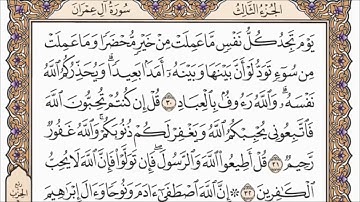 الجزء الثالث سورة آل عمران
يَوْمَ تَجِدُ كُلُّ نَفْسٍ مَّا عَمِلَتْ مِنْ خَيْرٍ مُّحْضَرًا وَمَا عَمِلَتْ
مِن سُوٓءٍ تَوَدُّ لَوْ أَنَّ بَيْنَهَا وَبَيْنَهُۥٓ أَمَدًۢا بَعِيدًا ۗ وَيُحَذِّرُكُمُ ٱللَّهُ
نَفْسَهُۥ ۗ وَٱللَّهُ رَءُوفٌۢ بِٱلْعِبَادِ ٣٠ قُلْ إِن كُنتُمْ تُحِبُّونَ ٱللَّهَ
فَٱتَّبِعُونِى يُحْبِبْكُمُ ٱللَّهُ وَيَغْفِرْ لَكُمْ ذُنُوبَكُمْ ۗ وَٱللَّهُ غَفُورٌ
رَّحِيمٌ ٣١ قُلْ أَطِيعُوا۟ ٱللَّهَ وَٱلرَّسُولَ ۖ فَإِن تَوَلَّوْا۟ فَإِنَّ ٱللَّهَ لَا يُحِبُّ
ٱلْكَٰفِرِينَ ٣٢ ۞ إِنَّ ٱللَّهَ ٱصْطَفَىٰٓ ءَادَمَ وَنُوحًا وَءَالَ إِبْرَٰهِيمَ
ربع
الحزب